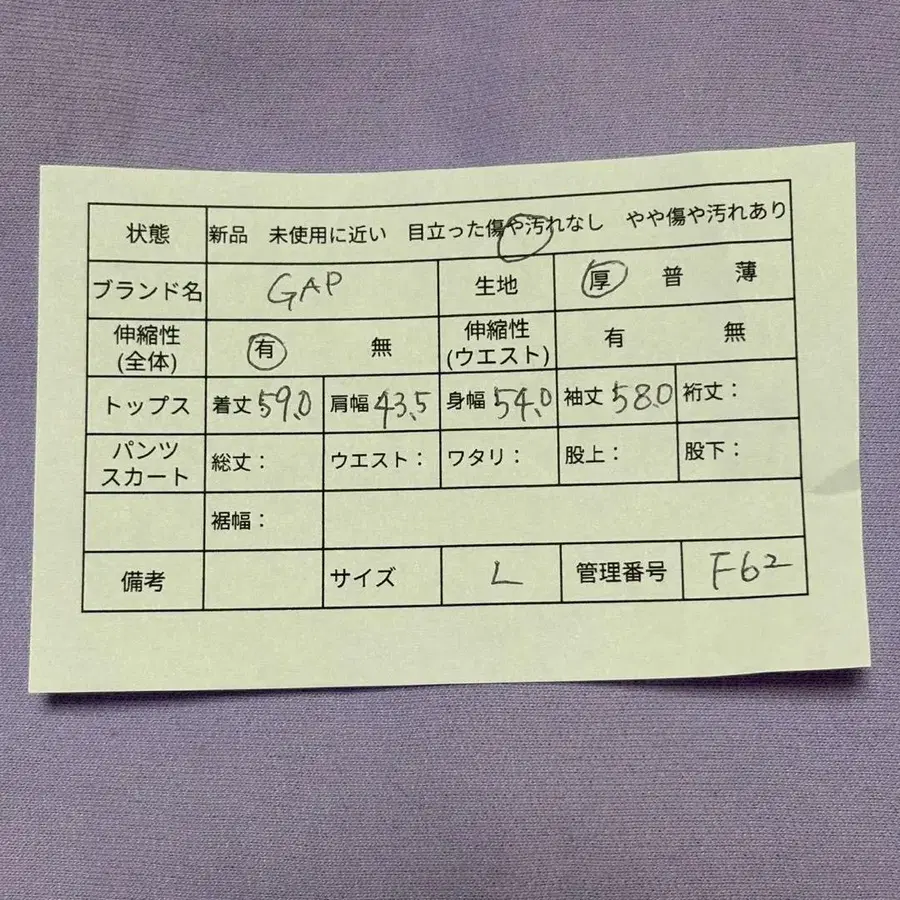 状態 新品 未使用に近い 目立った傷や汚れなし やや傷や汚れあり
ブランド名 GAP 生地 厚 普 薄
伸縮性 (全体) 有 無 伸縮性 (ウエスト) 有 無
トップス 着丈59.0 肩幅43.5 身幅54.0 袖丈58.0 裄丈：
パンツ スカート 総丈： ウエスト： ワタリ： 股上： 股下：
裾幅：
備考 サイズ L 管理番号 F62